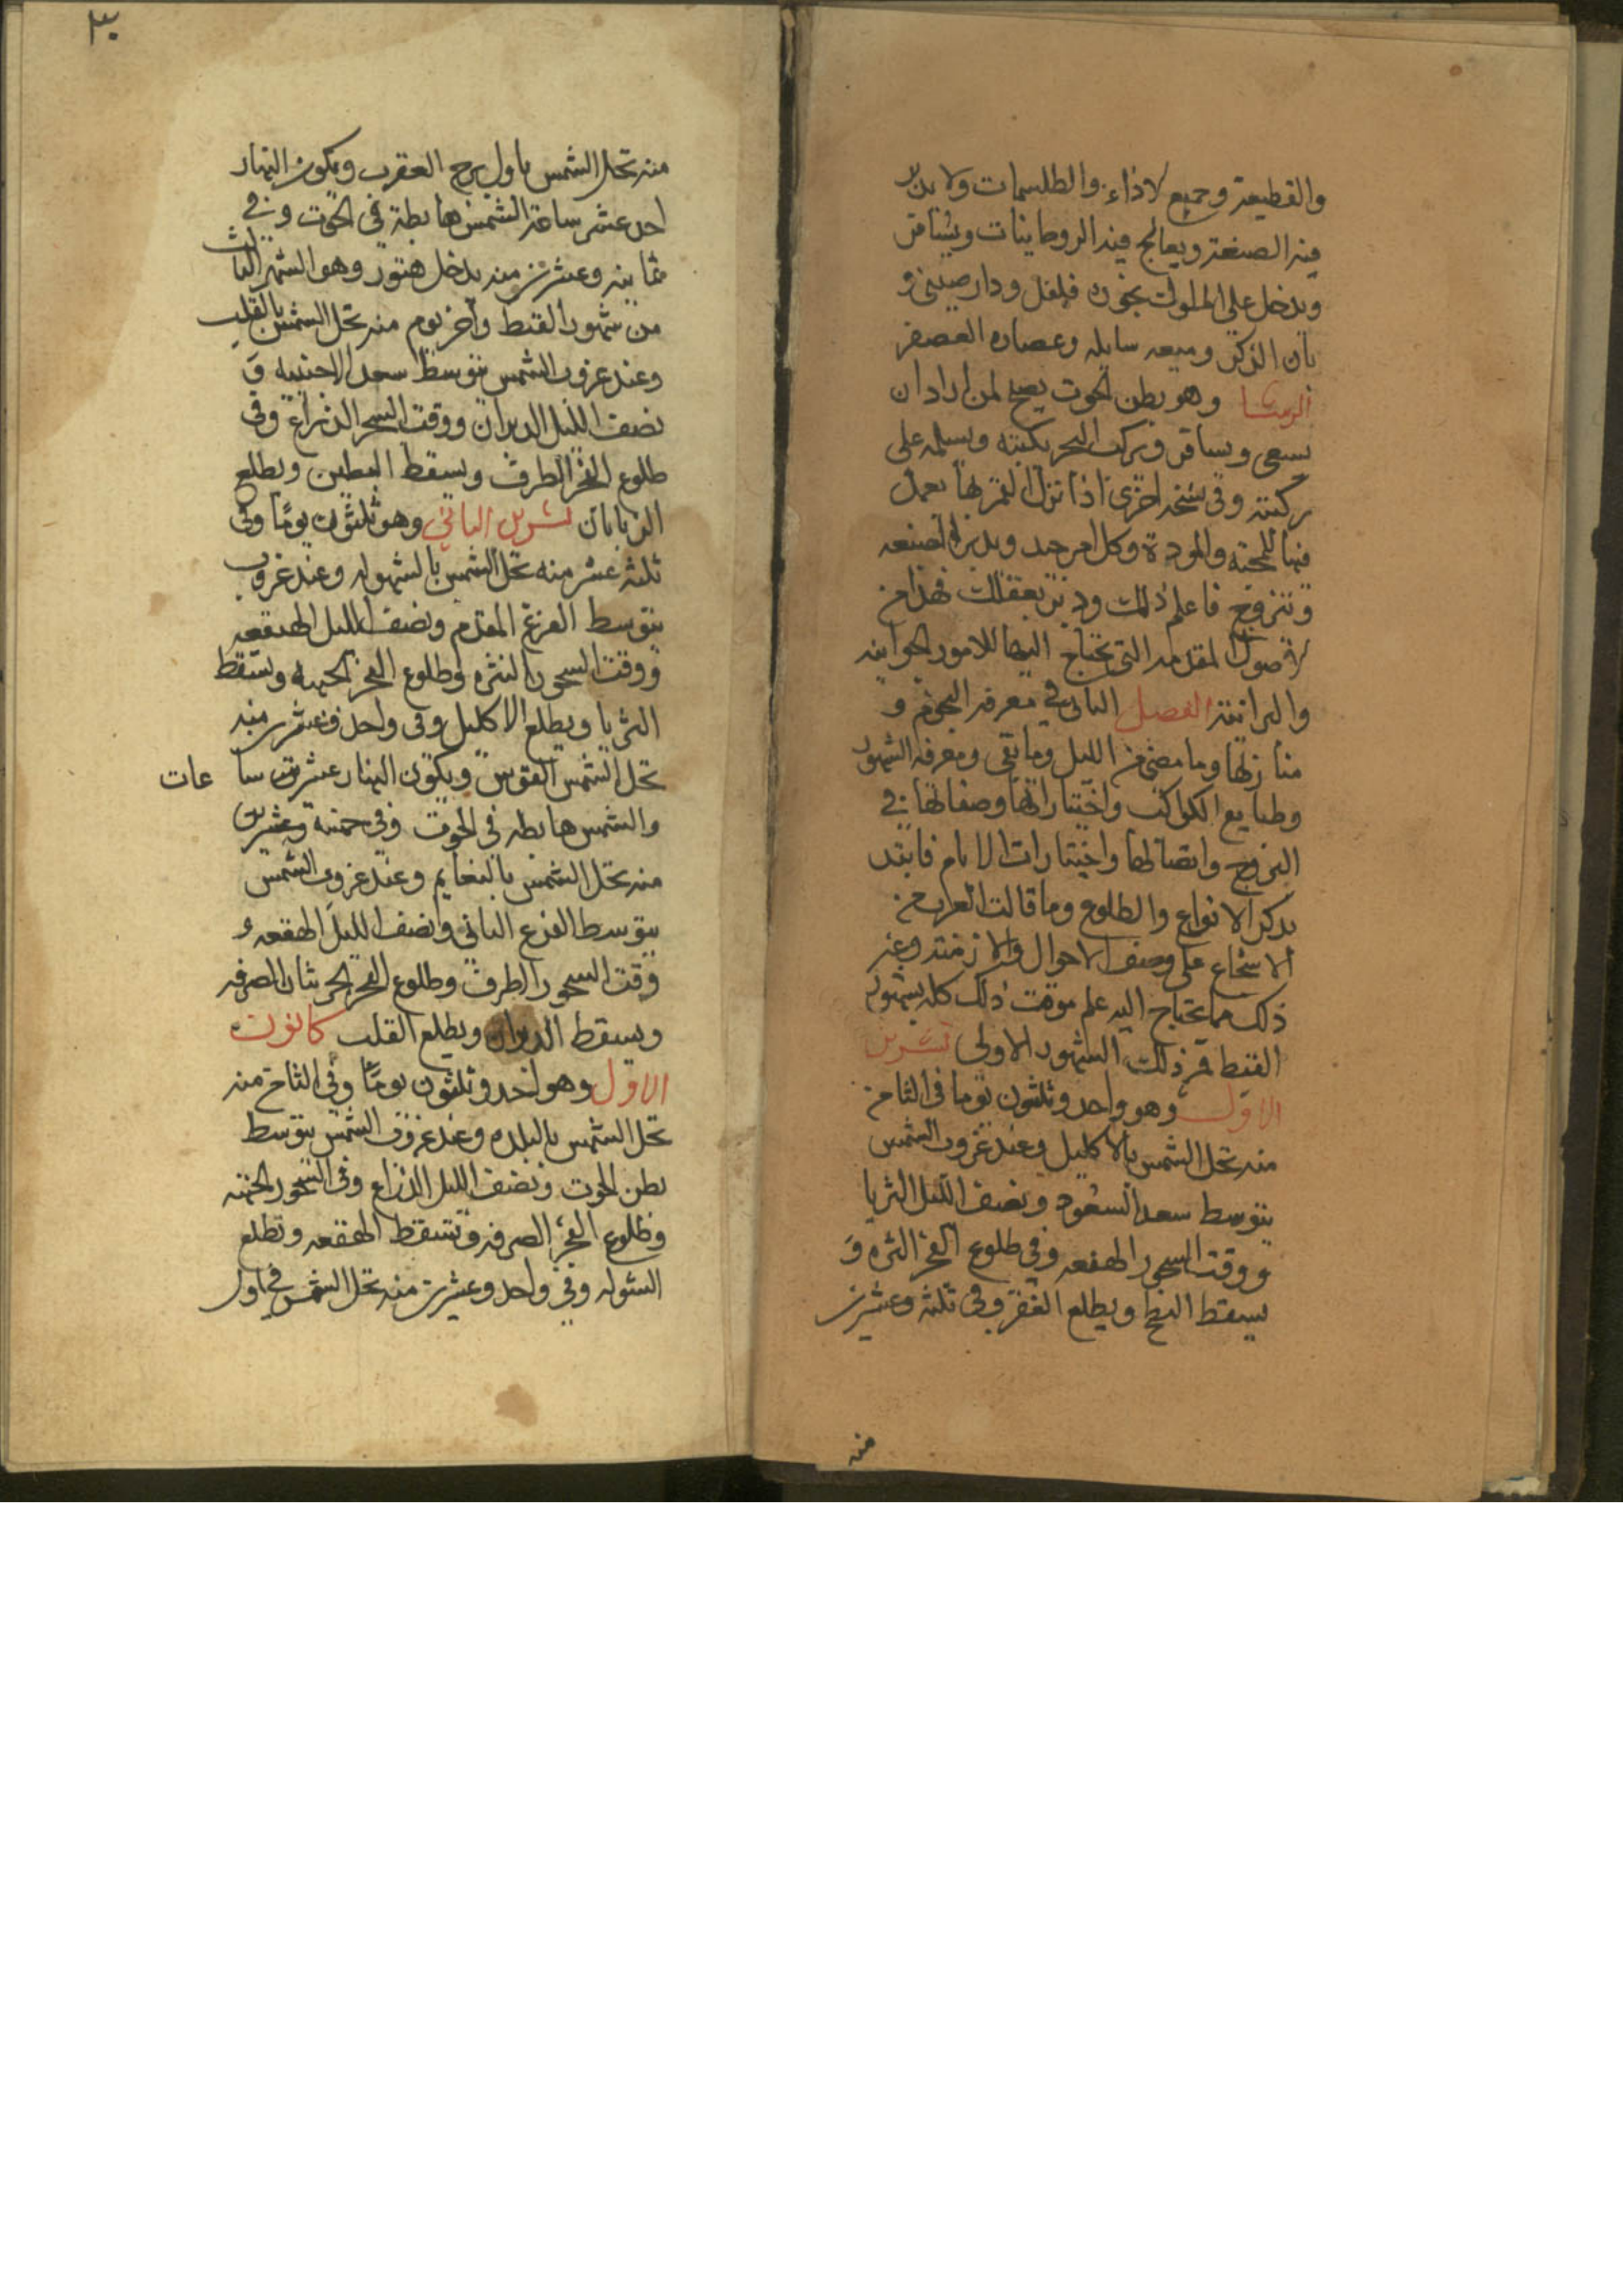 والقطيعة وجميع لاذاء والطلسمات ولا يدبر
فيه الصنعة ويعالج فيه الروحانيات ويسافر
ويدخل على الملوك بخوره فلفل ودار صيني و
بان الذكر وميعه سايله وعصاره العصفر
الرشا وهو بطن الحوت يصلح لمن اراد ان
يسعى ويسافر ويركب البحر يكبته ويسلمه على
ركبته وفي نسخه اخرى اذا نزل القمر بها يعمل
فيها للمحبه والمودة وكل امر جيد ويدبر الصنعه
ويتزوج فاعلم ذلك ودبر بعقلك فهذا من
الاصول المقدمه التي تحتاج اليها للامور الجوانيه
والبرانيه الفصل الثاني في معرفه النجوم و
منازلها وما مضى من الليل وما بقى ومعرفه الشهور
وطبايع الكواكب واختياراتها وصفاتها في
البروج واتصالها واختيارات الايام فابتد
بذكر الانواع والطلوع وما قالت العرب من
الاسجاع على وصف الاحوال والازمنه وغير
ذلك مما يحتاج اليه علم موقت ذلك كله بشهور
القبط فمن ذلك الشهور الاولى تشرين
الاول وهو واحد وثلثون يوما في الثامن
منه تحل الشمس بالاكليل وعند غروب الشمس
يتوسط سعد السعود ونصف الليل الثريا
ووقت السحور الهقعه وفي طلوع الفجر النثره و
يسقط البطح ويطلع الغفر وفي ثلثه وعشرين
منه
٣٠
منه تحل الشمس باول برج العقرب ويكون النهار
احد عشر ساعة الشمس هابطة في الحوت وفي
ثمانيه وعشرين منه يدخل هتور وهو الشهر الثالث
من شهور القبط واخر يوم منه تحل الشمس بالقلب
وعند غروب الشمس يتوسط سعد الاخبيه و
نصف الليل الدبران ووقت السحر الذراع وفي
طلوع الفجر الطرف ويسقط البطين ويطلع
الزبانان تشرين الثاني وهو ثلثون يومًا وفي
ثلثه عشر منه تحل الشمس بالشهوله وعند غروب
يتوسط الفرغ المقدم ونصف الليل الهقعه
ووقت السحور النثره وطلوع الفجر الجبهه وتسقط
الثريا ويطلع الاكليل وفي واحد وعشرين منه
تحل الشمس القوس ويكون النهار عشرت ساعات
والشمس هابطه في الحوت وفي خمسة وعشرين
منه تحل الشمس بالنعايم وعند غروب الشمس
يتوسط الفرع الثاني وانصف الليل الهقعه و
وقت السحور الطرف وطلوع الفجر الخرثان الصرفه
ويسقط الدبران ويطلع القلب كانون
الاول وهو احد وثلثون يومًا وفي الثامن منه
تحل الشمس بالبلده وعند غروب الشمس يتوسط
بطن الحوت ونصف الليل الذراع وفي السحور الجبهه
وطلوع الفجر الصرفه وتسقط الهقعه وتطلع
الشوله وفي واحد وعشرين منه تحل الشمس في اول